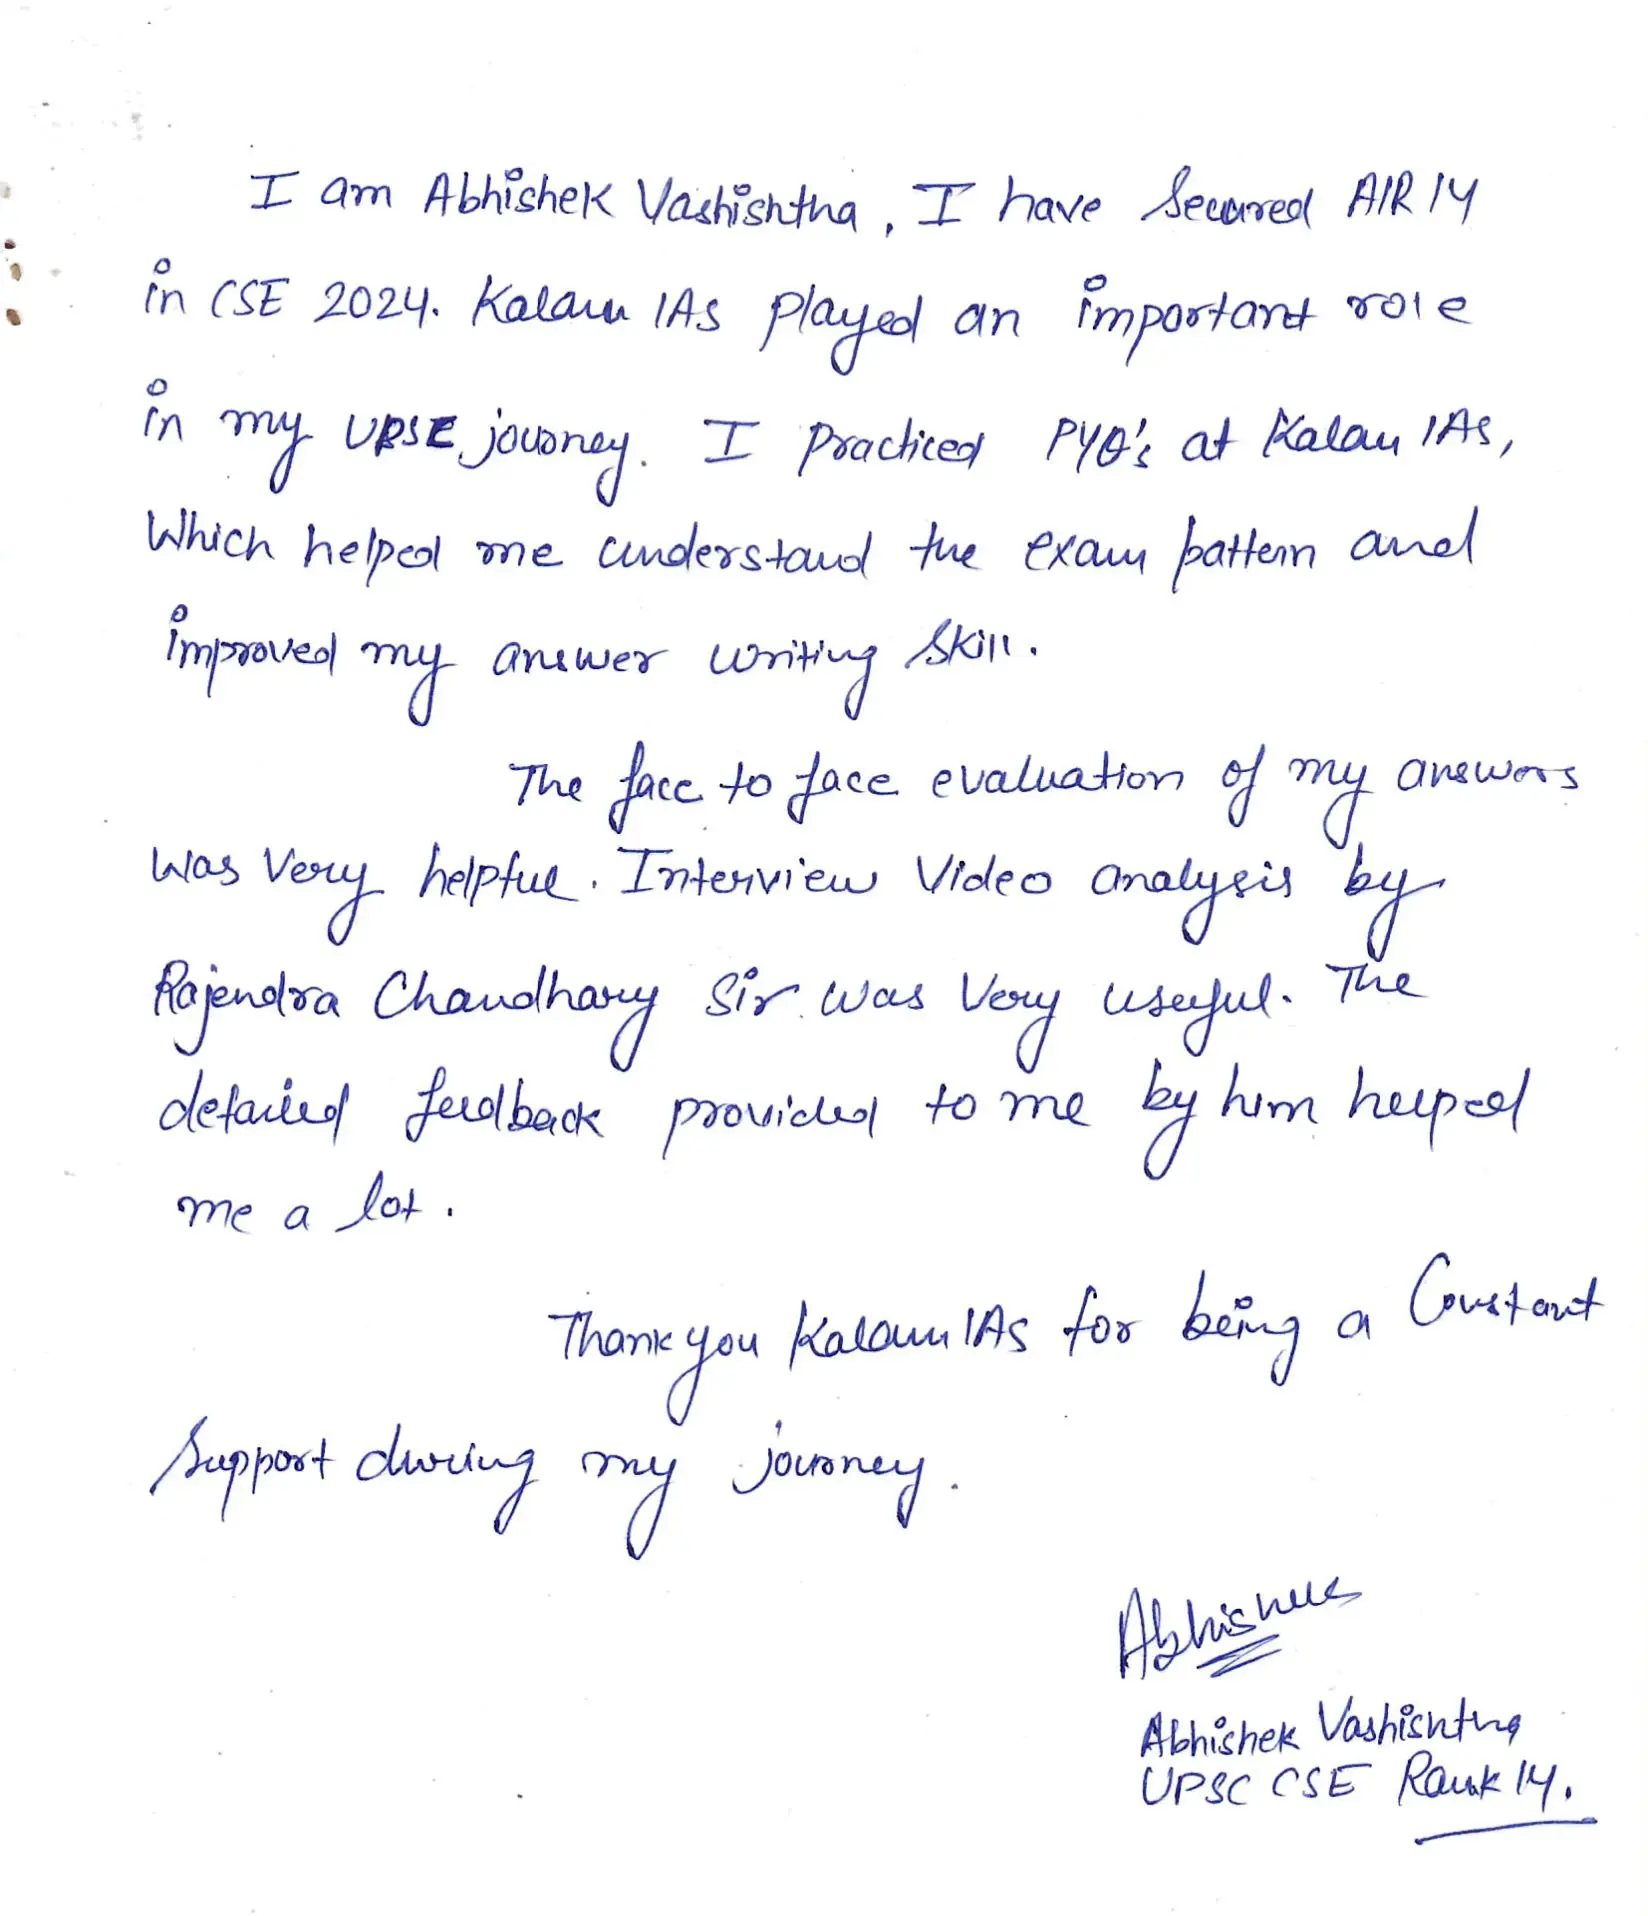 I am Abhishek Vashishtha, I have Secured AIR 14
in CSE 2024. Kalam IAS played an important role
in my UPSE journey. I practiced PYQ's at Kalam IAS,
Which helped me understand the exam pattern and
improved my answer writing skill.
The face to face evaluation of my answers
was very helpful. Interview Video analysis by
Rajendra Chaudhary Sir was very useful. The
detailed feedback provided to me by him helped
me a lot.
Thank you Kalam IAS for being a Constant
Support during my journey.
Abhishek
Abhishek Vashishtha
UPSC CSE Rank 14.